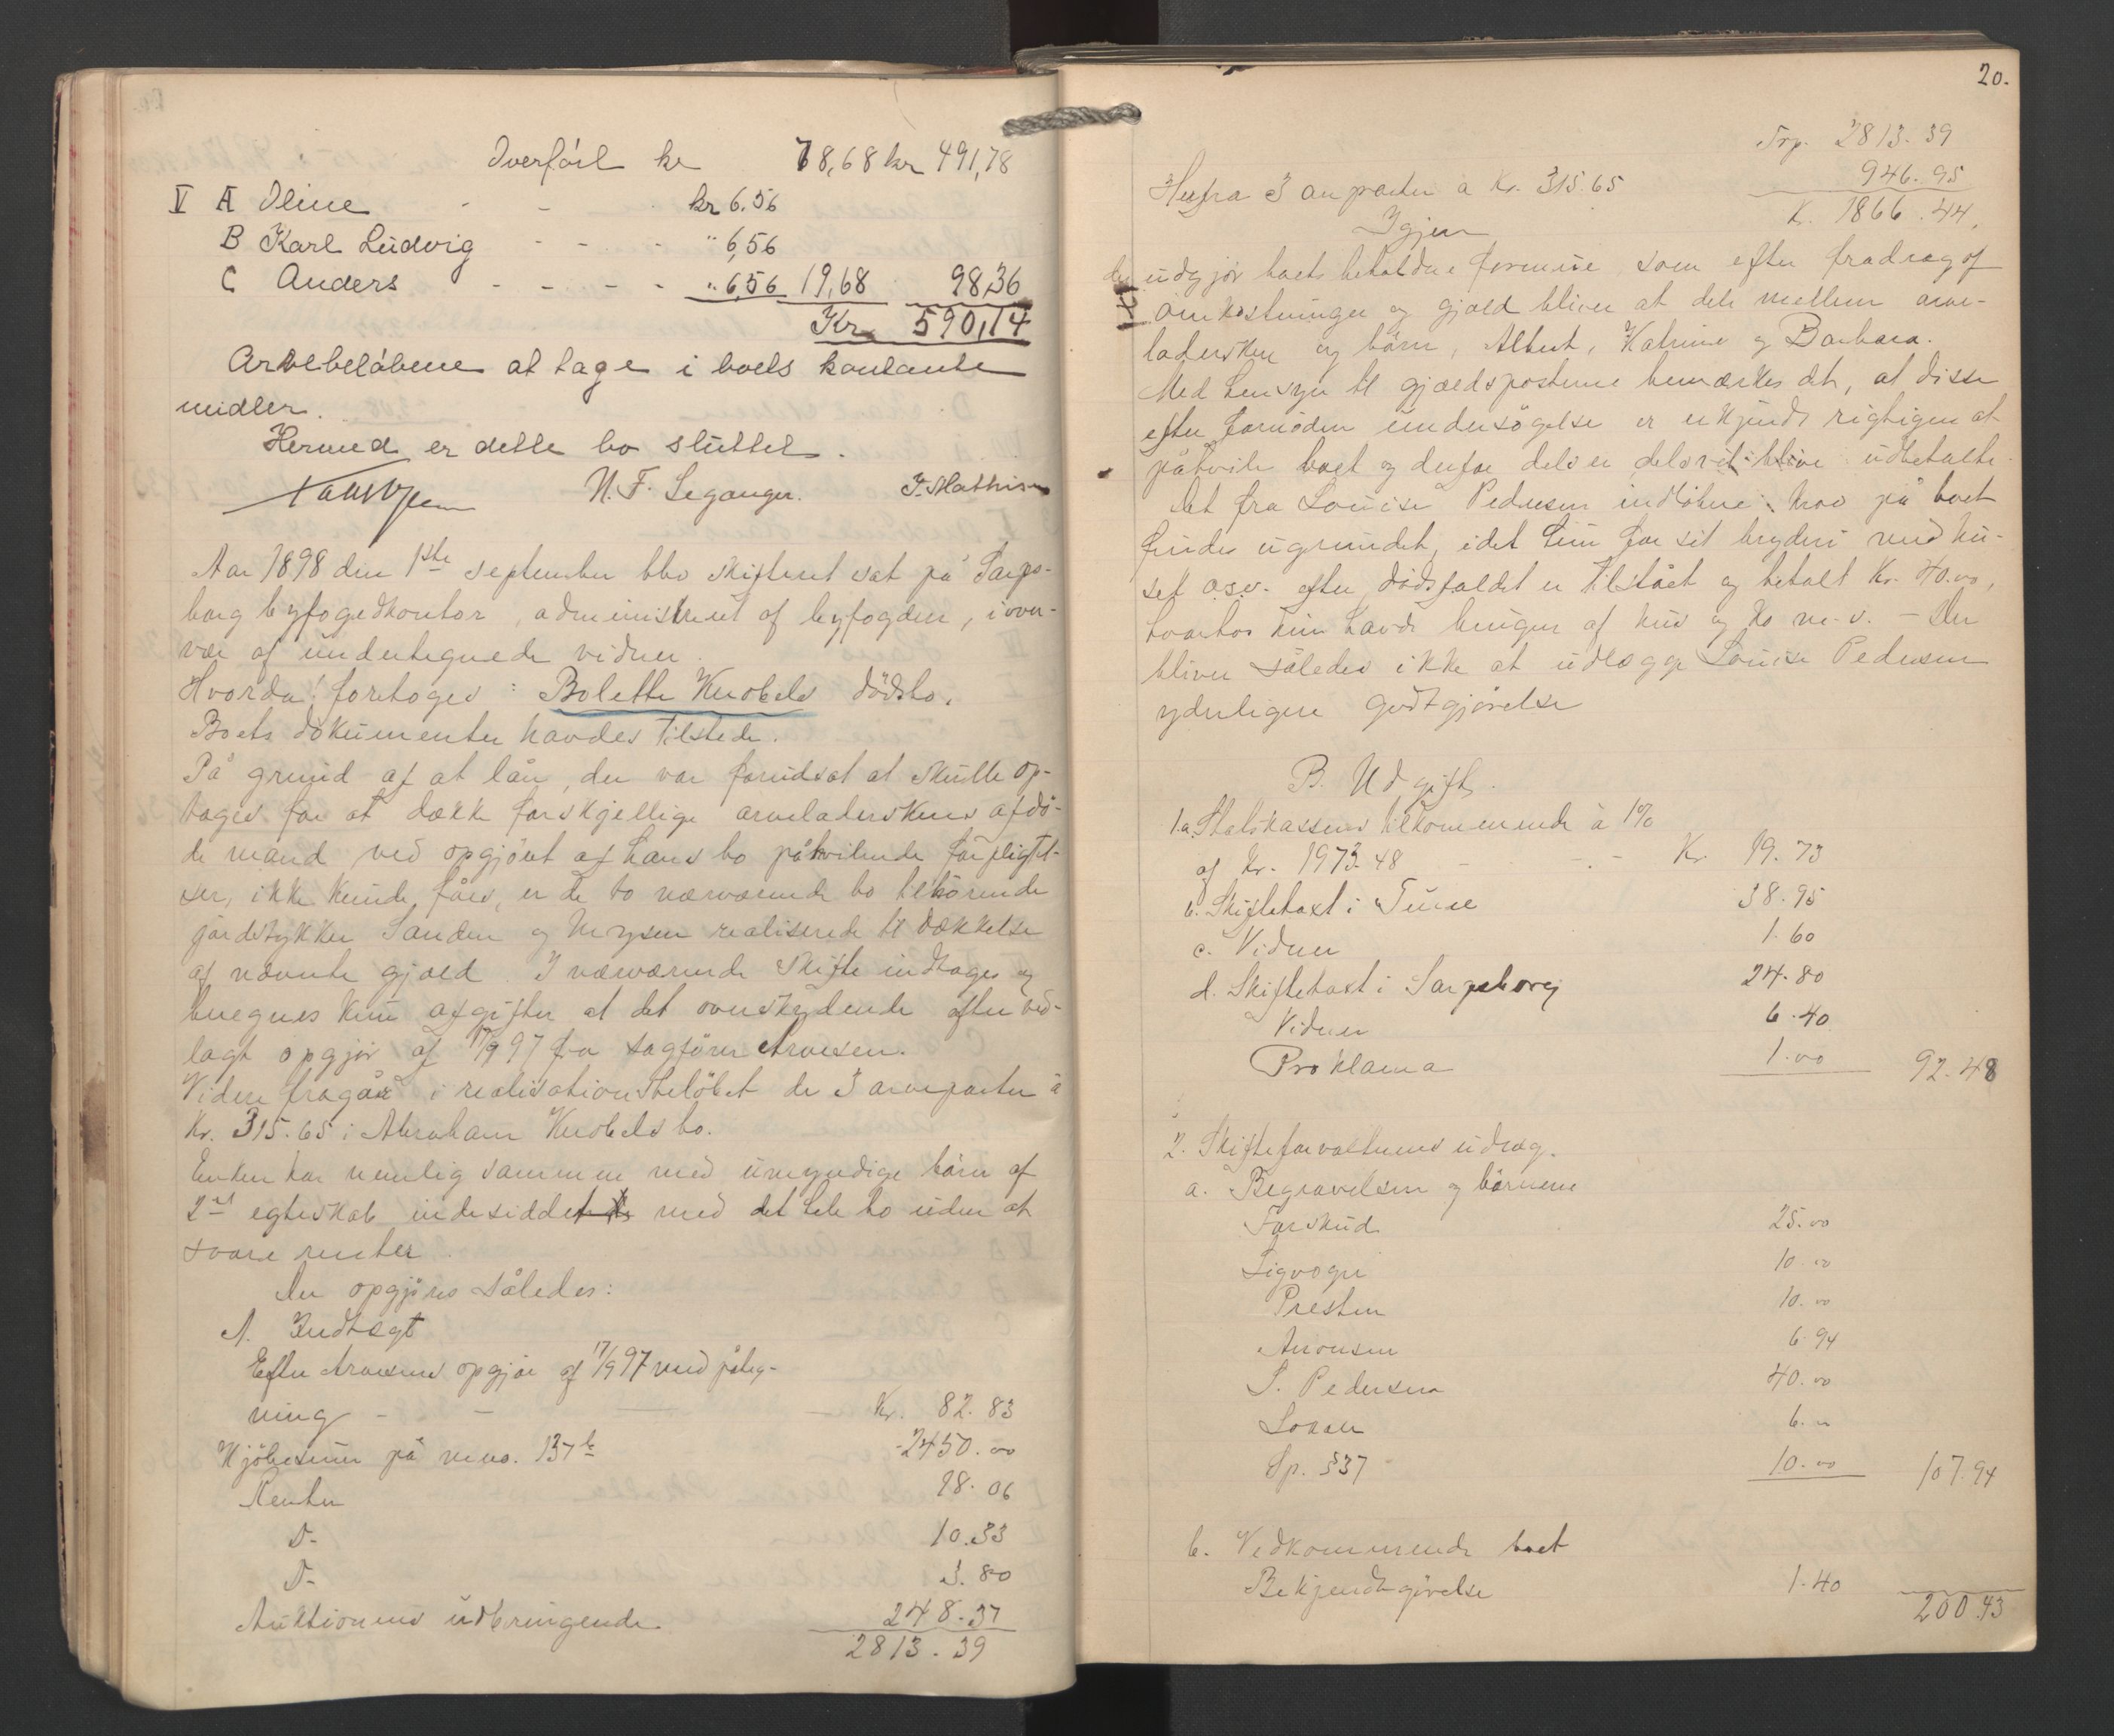 Overført kr 78,68 kr 491,78
V A Oline - - kr 6,56
B Karl Ludvig - - - " 6,56
C Anders - - - - " 6,56 19,68 98,36
Kr 590,14
Arvebeløbene at tage i boets kontante
midler.
Hermed er dette bo sluttet.
N. F. Leganger. J. Mathisen
Aar 1898 den 1ste september blev skifteret sat på Sarps-
borg byfogedkontor, administreret af byfogden, i over-
vær af undertegnede vidner.
Hvorda! foretoges: Bolette Knobels dødsbo.
Boets dokumenter havdes tilstede.
På grund af at lån, der var forudsat at skulle op-
tages for at dække forskjellige arveladerskens afdø-
de mand ved opgjøret af hans bo påhvilende forpligtel-
ser, ikke kunde fåes, er de to nærværende bo tilhørende
jordstykker Sanden og Mysen realiserede til dækkelse
af nævnte gjæld. I nærværende skifte indtages og
beregnes kun afgifter at det overskydende efter ved-
lagt opgjør af 17/9 97 fra sagfører Arnesen.
Videre fragår i realisationsbeløbet de 3 arveparter à
Kr. 315.65 i Abraham Knobels bo.
Enken har nemlig sammen med umyndige børn af
2det egteskab indesiddet med det hele bo uden at
svare renter.
Der opgjøres således:
A. Indtægt
Efter Arnesens opgjør af 17/9 97 med påteg-
ning - - - - Kr. 82.83
Kjøbesum på m no. 137 b 2450.00
Renter 18.06
D- 10.33
D- 3.80
Auktionens udbringende 248.37
2813.39
20.
Trp. 2813.39
Herfra 3 arvparter a Kr. 315.65 946.95
Igjen K. 1866.44.
der udgjør boets beholdne formue, som efter fradrag af
omkostninger og gjæld bliver at dele mellem arve-
ladersken og børn, Albert, Katrine og Barbara.
Med hensyn til gjældsposterne bemærkes det, at disse
efter fornøden undersøgelse er erkjendt rigtigen at
påhvile boet og derfor dels er dels vil blive udbetalte.
Det fra Louise Pedersen indløbne krav på boet
findes ugrundet, idet hun for sit bryderi med hu-
set o.s.v. efter dødsfaldet er tilstået og betalt Kr. 40.00,
hvorhos hun havde bengen af hus og ko m.v. - Der
bliver således ikke at udlægge Louise Pedersen
yderligere godtgjørelse
B. Udgift.
1.a. Statskassens tilkommende à 1%
af Kr. 1973.48 - - - Kr. 19.73
b. Skiftetaxt i Tune 38.95
c. Vidner 1.60
d. Skiftetaxt i Sarpsborg 24.80
Vidner 6.40
Proklama 1.00 92.48
2. Skifteforvaltnens udlæg.
a. Begravelsen og børnene
Forskud 25.00
Ligvogn 10.00
Presten 10.00
Aronsen 6.94
L. Pedersen 40.00
6.00
Sp. §37 10.00 107.94
b. Vedkommende boet
Bekjendtgjørelse 1.40
200.43